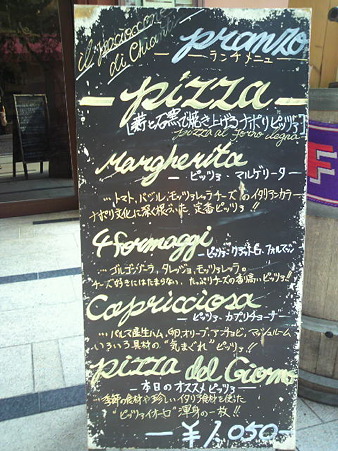 il pacioccone
di Chianti
pranzo
ーランチメニュー
ーpizzaー
薪と石窯で焼き上げるナポリピッツァ!
pizza al forno legna
Margherita
ーピッツァ マルゲリーター
…トマト、バジル、モッツァレッラチーズのイタリアンカラー
ナポリ文化に深く根ざした 定番ピッツァ!!
4 formaggi
ーピッツァ・クアットロ、フォルマッジ
…ゴルゴンゾーラ、タレッジョ、モッツァレッラ。
チーズ好きにはたまらない、たっぷりチーズの香り高いピッツァ!!
Capricciosa
ーピッツァ・カプリチョーザー
…パルマ産生ハム、卵、オリーブ、アンチョビ、マッシュルーム
いろいろ具材の"気まぐれ"ピッツァ!!
pizza del Giorno
ー本日のオススメピッツァー
…季節の食材や珍しいイタリア食材を使った
"ピッツァイオーロ"渾身の一枚!!
ー¥1,050ー
F